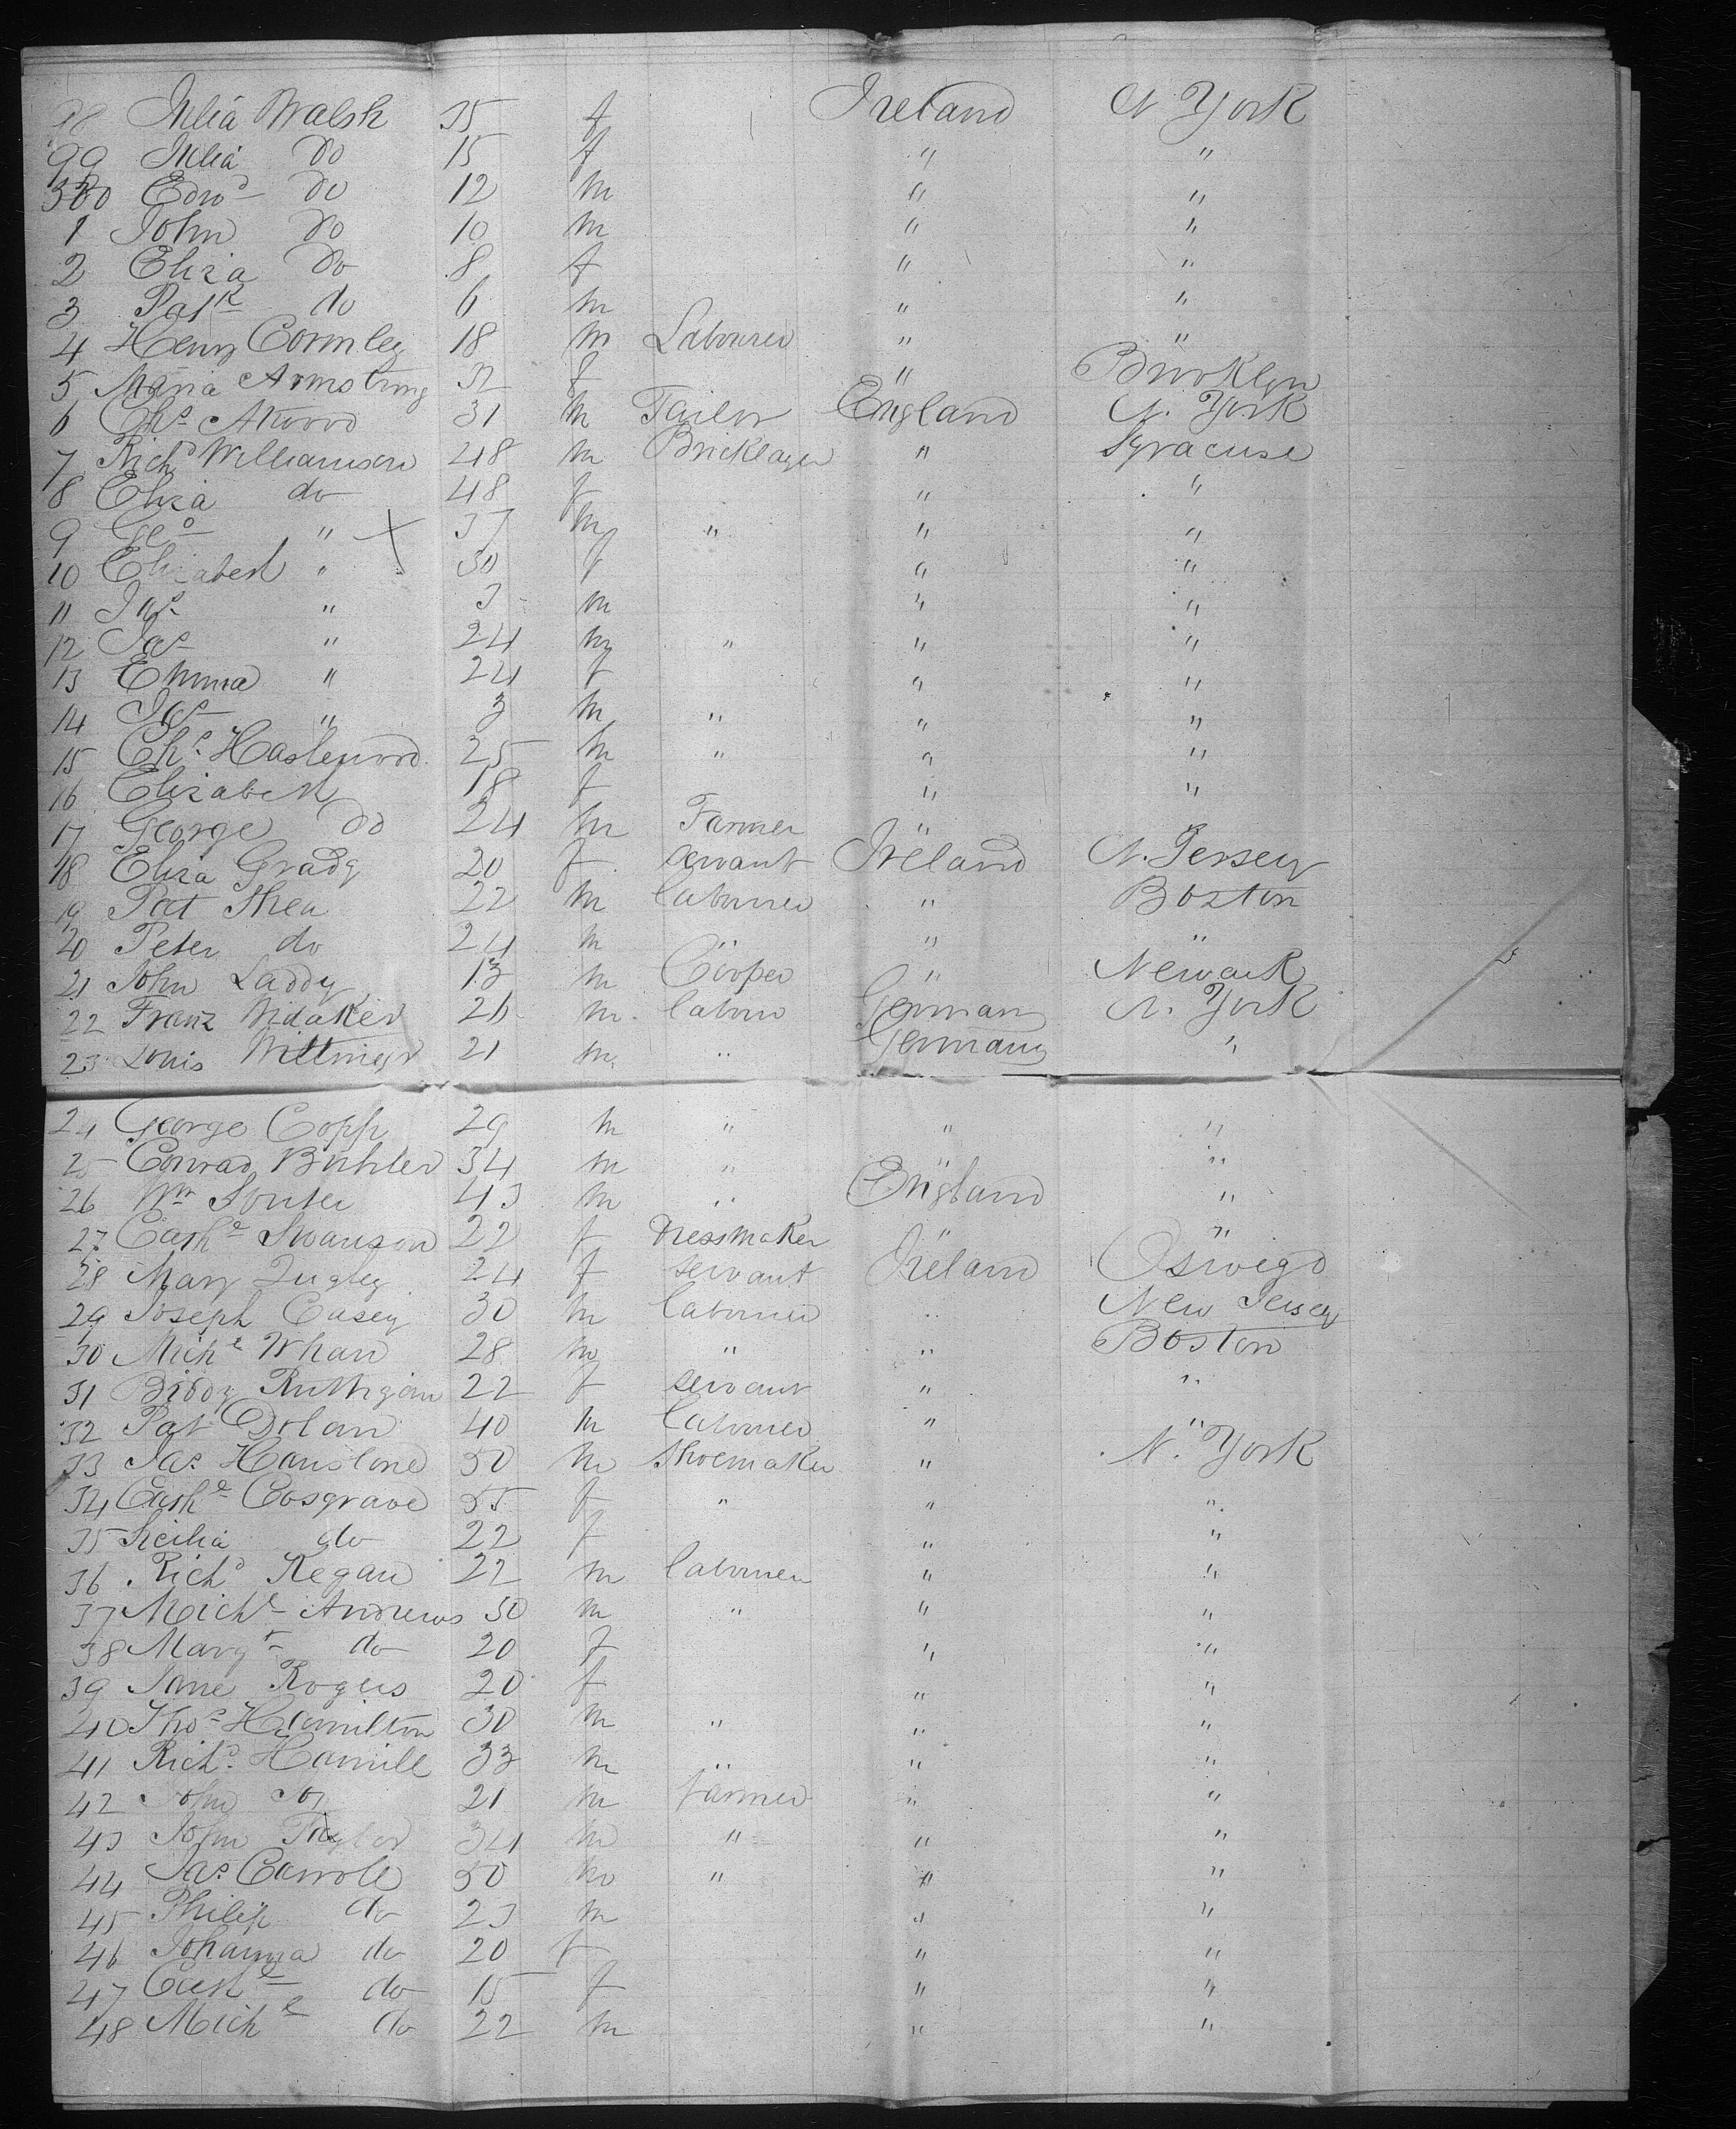 98 Julia Walsh 35 f Ireland N York
99 Julia Do 15 f " "
300 Edwd Do 12 m " "
1 John Do 10 m " "
2 Eliza Do 8 f " "
3 Patk do 6 m " "
4 Henry Cormley 18 m Labourer " "
5 Maria Armstrong 32 f " Brooklyn
6 Chs Atwood 31 m Tailor England N. York
7 Richd Williamson 48 m Bricklayer " Syracuse
8 Eliza do 48 f " "
9 Geo " 37 m " " "
10 Elizabeth " 30 f " "
11 Jas " 3 m " "
12 Jas " 24 m " " "
13 Emma " 24 f " "
14 Jos " 3 m " " "
15 Chs Haslewood 25 m " " "
16 Elizabeth 18 f " "
17 George Do 24 m Farmer " "
18 Eliza Grady 20 f servant Ireland N. Jersey
19 Pat Shea 22 m labourer " Boston
20 Peter do 24 m " " "
21 John Laddy 13 m Cooper " Newark
22 Franz Widaker 26 m labour German N. York
23 Louis Wittmeyr 21 m " Germany "
24 George Copp 29 m " " "
25 Conrad Buhler 34 m " " "
26 Wm Souter 43 m " England "
27 Cathe Swanson 22 f Dressmaker " "
28 Mary Quigley 24 f servant Ireland Oswego
29 Joseph Casey 30 m labourer " New Jersey
30 Michl Whan 28 m " " Boston
31 Biddy Ruthigan 22 f servant " "
32 Pat Dolan 40 m labourer " "
33 Jas Hanslone 50 m Shoemaker " N. York
34 Cathe Cosgrave 55 f " " "
35 Sicilia do 22 f " "
36 Richd Regan 22 m labourer " "
37 Michl Andrews 50 m " " "
38 Margt do 20 f " "
39 Jane Rogers 20 f " "
40 Thos Hamilton 30 m " " "
41 Richd Hamill 33 m " " "
42 John 21 m farmer " "
43 John Taylor 34 m " " "
44 Jas Carroll 50 m " " "
45 Philip do 23 m " "
46 Johanna do 20 f " "
47 Cathe do 15 f " "
48 Michl do 22 m " "